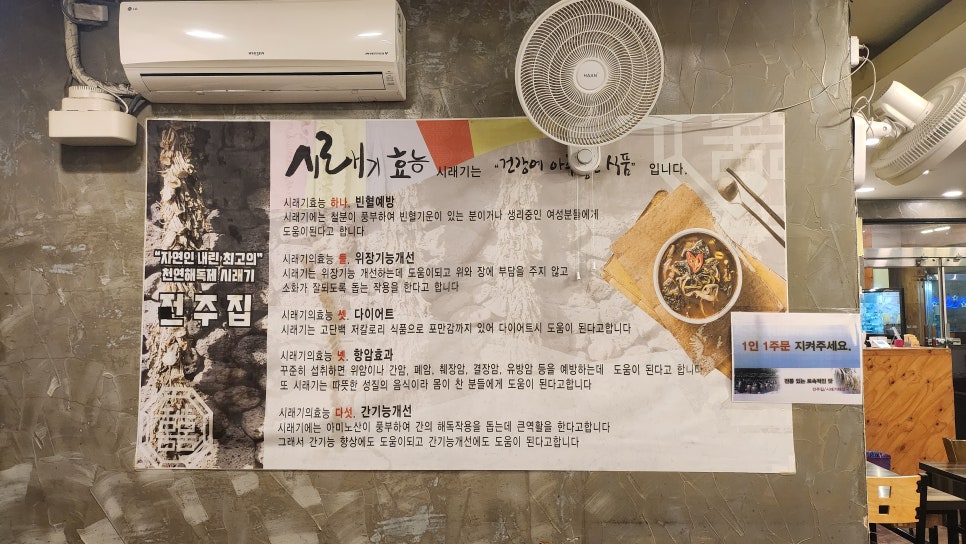 LG
WHISEN
HAAN
시래기 효능 시래기는 "건강에 식품" 입니다.
"자연인 내린 최고의"
천연해독제 시래기
전주집
시래기효능 하나. 빈혈예방
시래기에는 철분이 풍부하여 빈혈기운이 있는 분이거나 생리중인 여성분들에게
도움이된다고 합니다
시래기의효능 둘. 위장기능개선
시래기는 위장기능 개선하는데 도움이되고 위와 장에 부담을 주지 않고
소화가 잘되도록 돕는 작용을 한다고 합니다
시래기의효능 셋. 다이어트
시래기는 고단백 저칼로리 식품으로 포만감까지 있어 다이어트시 도움이 된다고합니다
시래기의효능 넷. 항암효과
꾸준히 섭취하면 위암이나 간암, 폐암, 췌장암, 결장암, 유방암 등을 예방하는데 도움이 된다고 합니다
또 시래기는 따뜻한 성질의 음식이라 몸이 찬 분들에게 도움이 된다고합니다
시래기의효능 다섯. 간기능개선
시래기에는 아미노산이 풍부하여 간의 해독작용을 돕는데 큰역활을 한다고합니다
그래서 간기능 향상에도 도움이되고 간기능개선에도 도움이 된다고합니다
1인 1주문 지켜주세요.
전통 있는 토속적인 맛
전주집/시래기